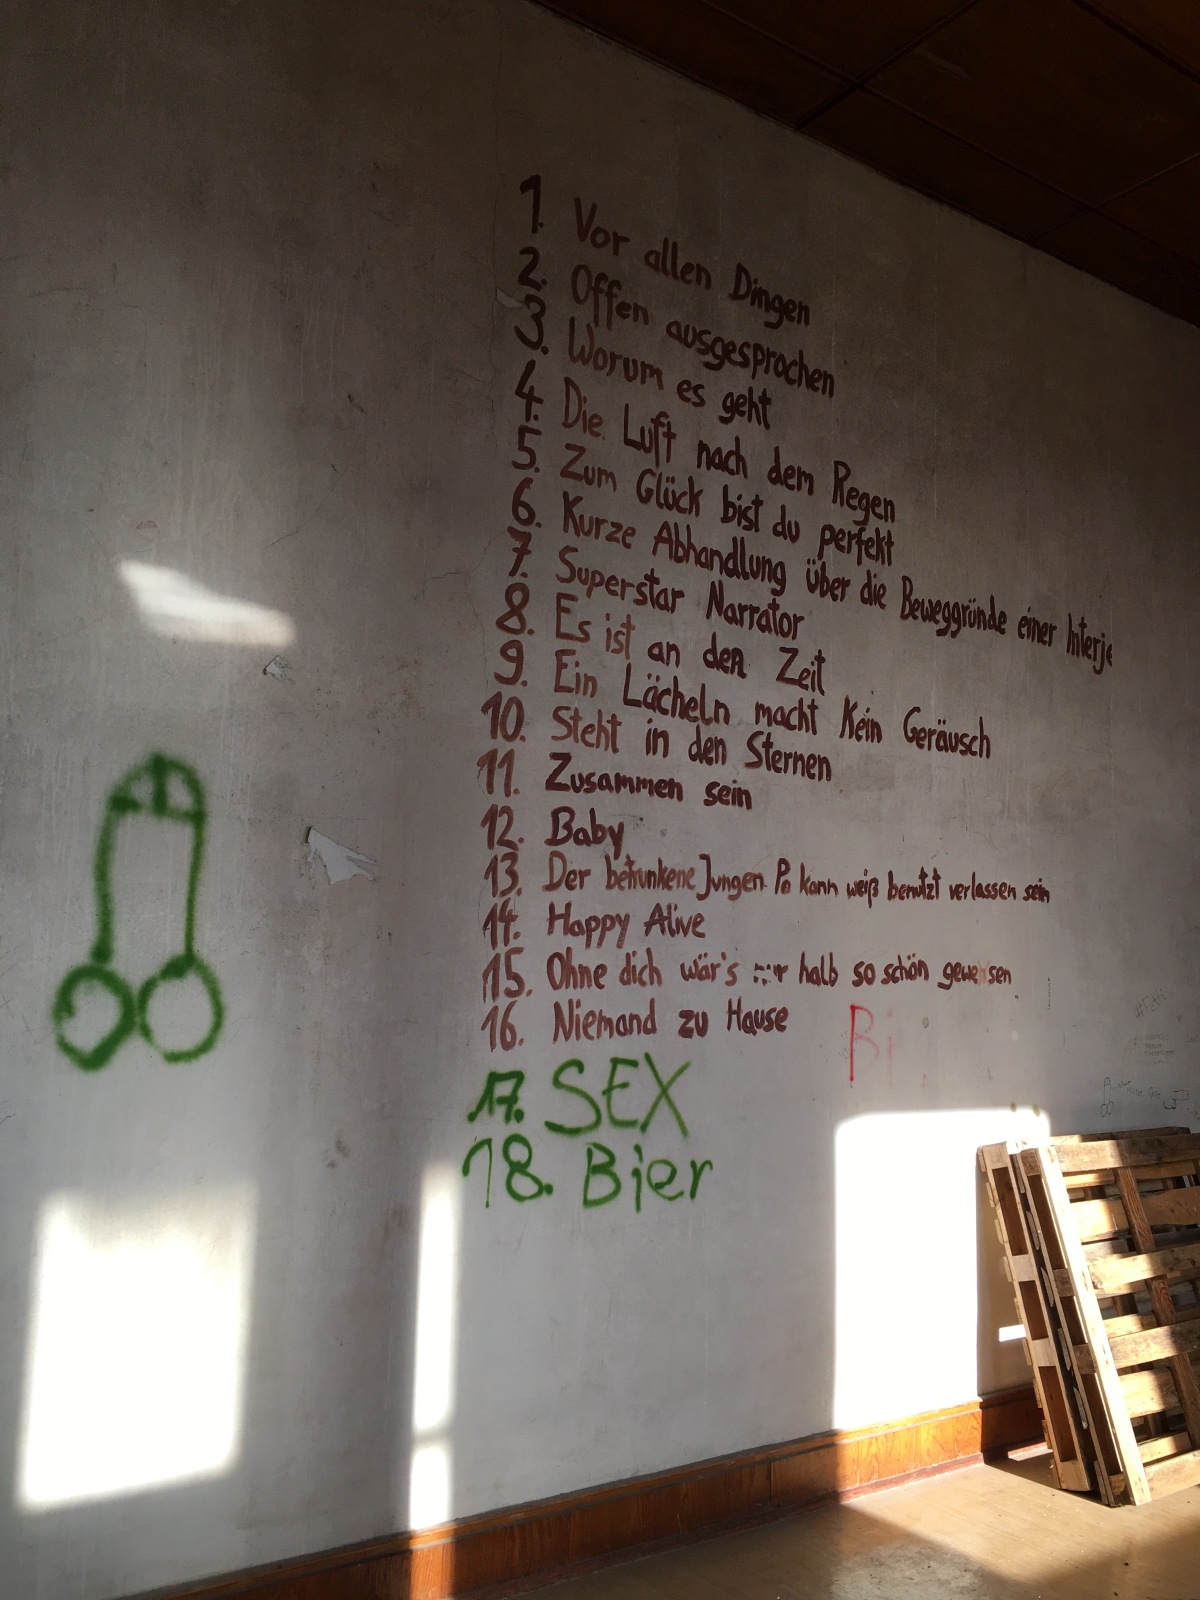 1. Vor allen Dingen
2. Offen ausgesprochen
3. Worum es geht
4. Die Luft nach dem Regen
5. Zum Glück bist du perfekt
6. Kurze Abhandlung über die Beweggründe einer Interje
7. Superstar Narrator
8. Es ist an den Zeit
9. Ein Lächeln macht Kein Geräusch
10. Steht in den Sternen
11. Zusammen sein
12. Baby
13. Der betrunkene Jungen Po kann weiß benutzt verlassen sein
14. Happy Alive
15. Ohne dich wär's halb so schön gewesen
16. Niemand zu Hause
Bi
17. SEX
18. Bier